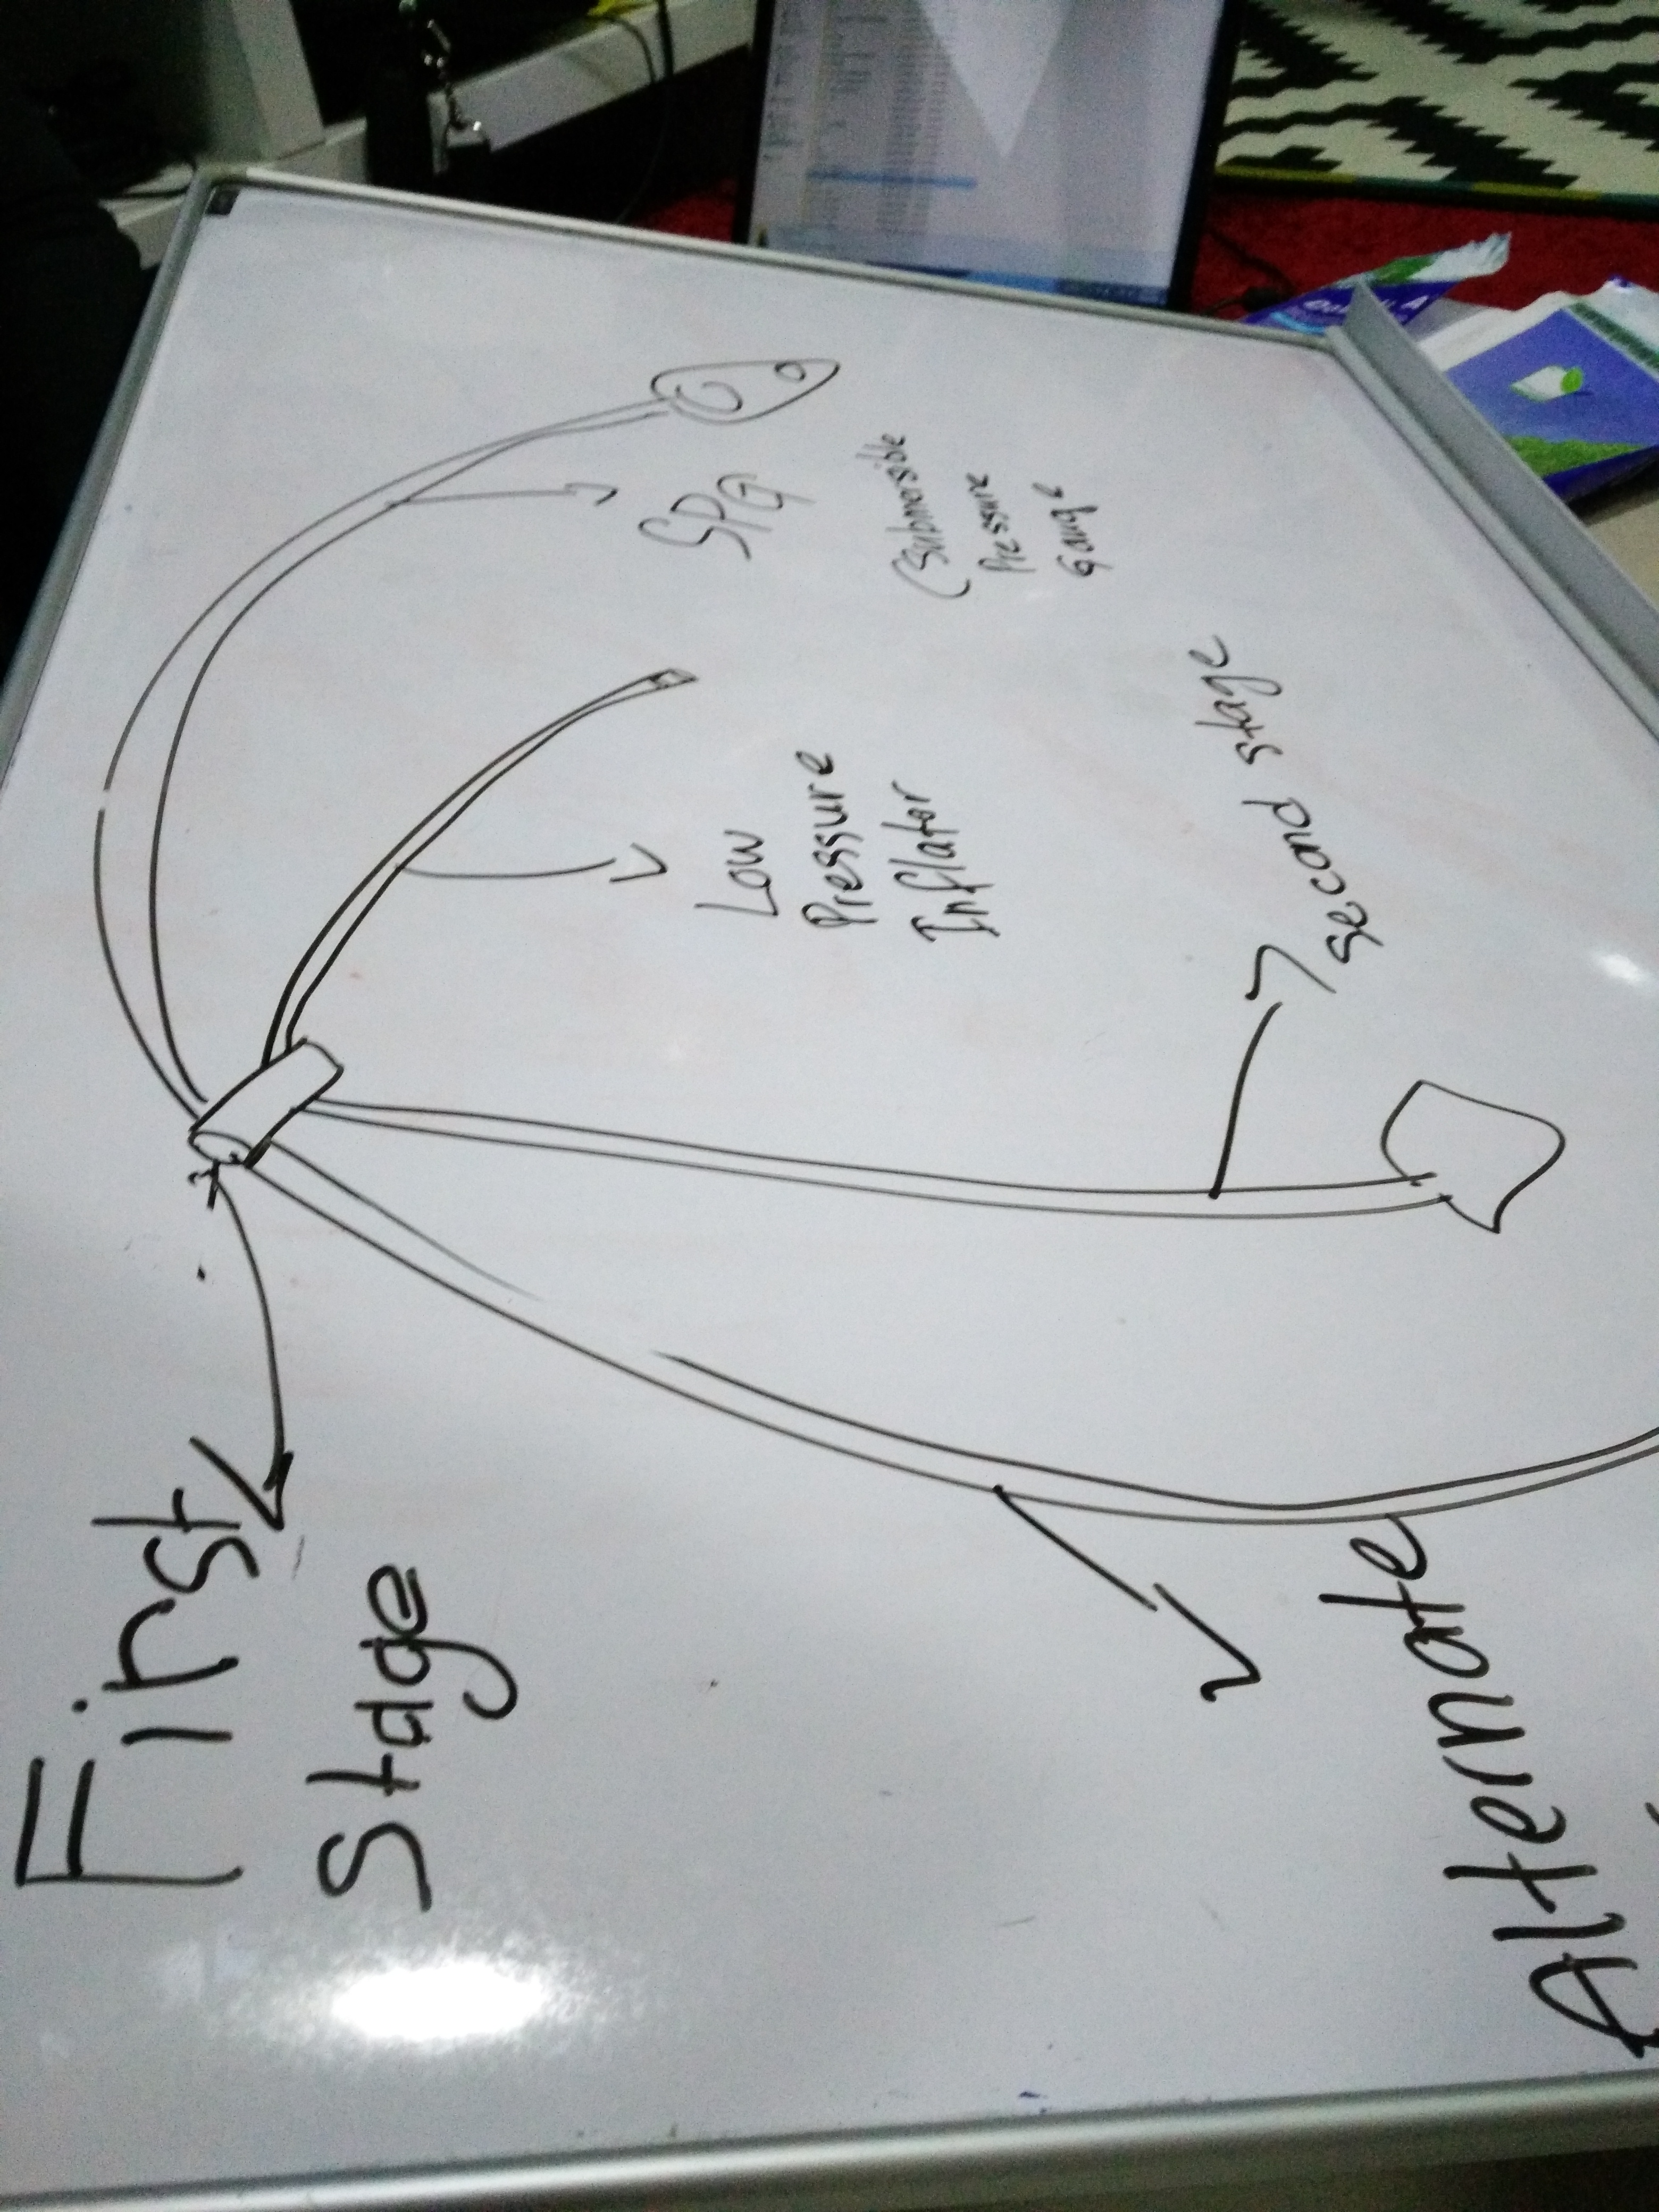 First
Stage
SPG
(Submersible
Pressure
Gauge
Low
Pressure
Inflator
Second stage
Alternate